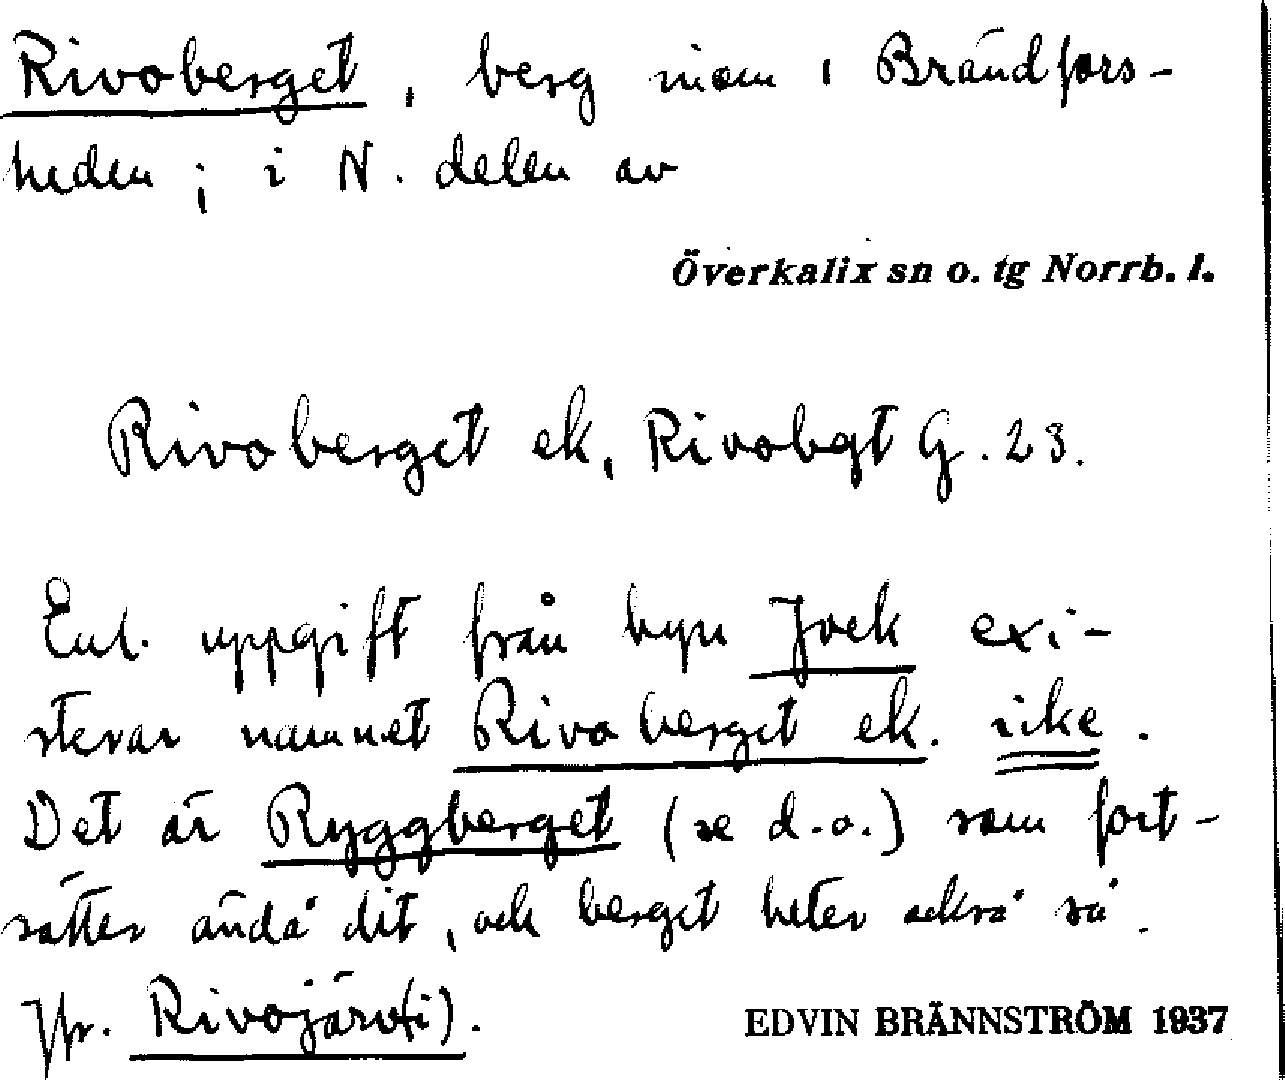 Rivoberget, berg inom i Brändfors-
heden; i N. delen av
Överkalix sn o. tg Norrb. l.
Rivoberget ek, Rivobgt G. 23.
Enl. uppgift från byn Jock exi-
sterar namnet Rivoberget ek. icke.
Det är Ryggberget (se d.o.) som fort-
sätter ända dit, och berget heter också så.
Jfr. Rivojärv(i).
EDVIN BRÄNNSTRÖM 1937